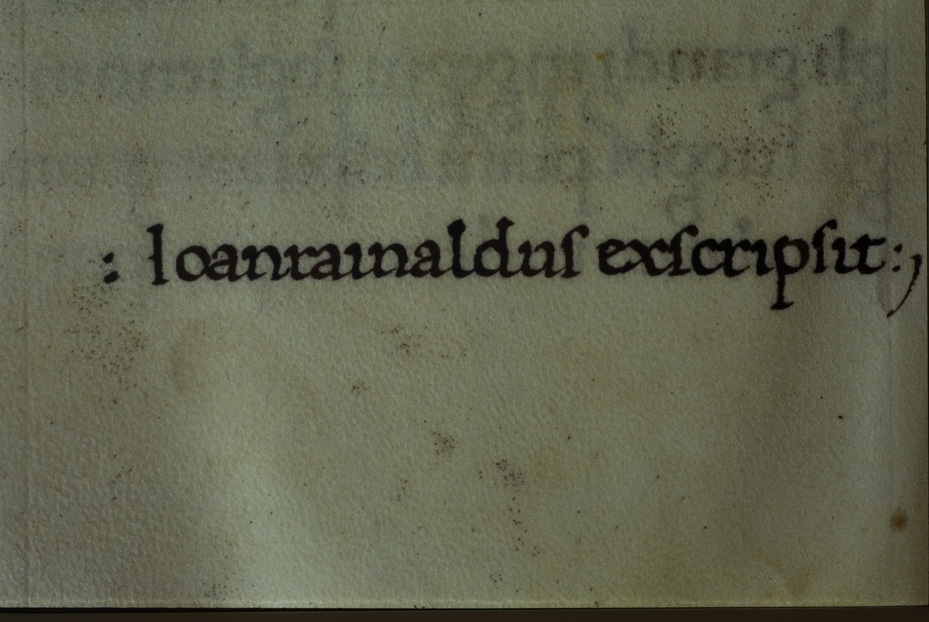 : Ioanrainalduſ exſcripſit:,